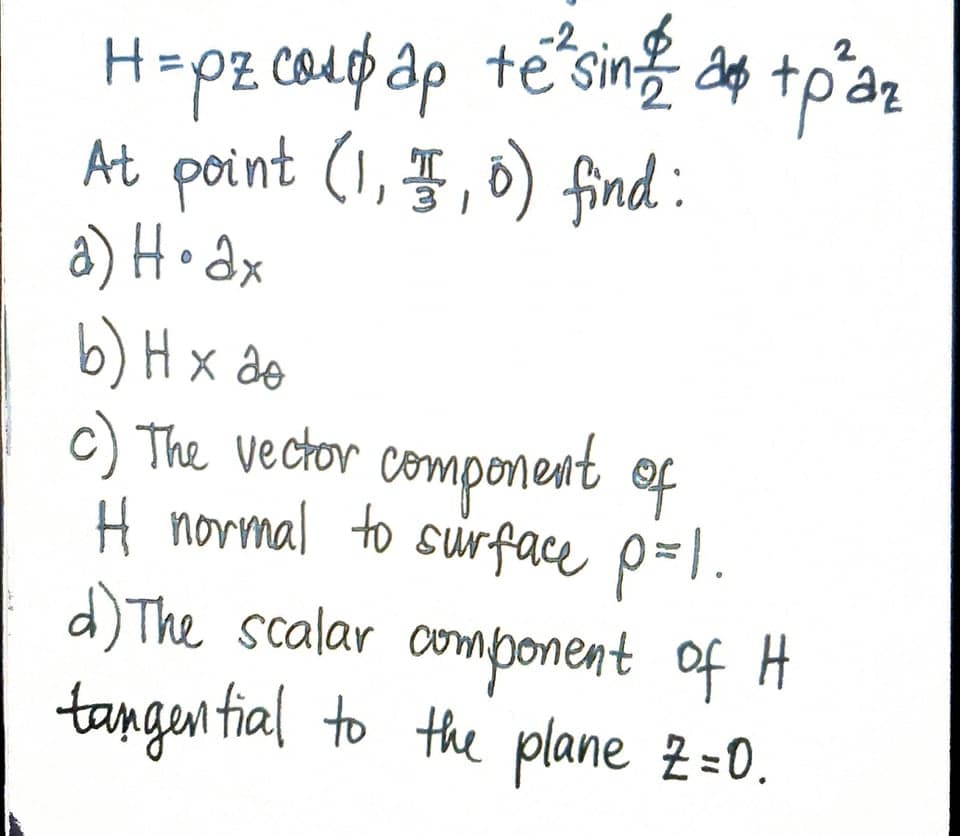 H = ρz cosφ aρ + e⁻² sin φ/2 aφ + ρ² az
At point (1, π/3, 0) find:
a) H • ax
b) H x aθ
c) The vector component of
H normal to surface ρ=1.
d) The scalar component of H
tangential to the plane z=0.